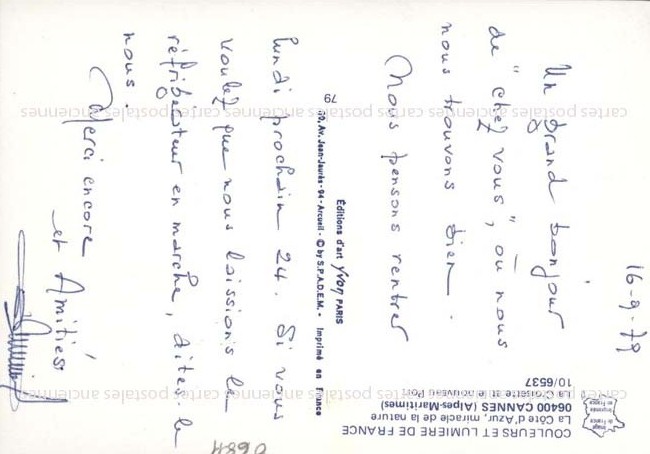 16-9-79
Un grand bonjour
de "chez vous", où nous
nous trouvons bien.
Nous pensons rentrer
lundi prochain 24. Si vous
voulez que nous laissions le
réfrigérateur en marche, dites-le
nous.
Merci encore
et Amitiés
COULEURS ET LUMIERE DE FRANCE
La Côte d'Azur, miracle de la nature
06400 CANNES (Alpes-Maritimes)
La Croisette et le nouveau Port
10/6537
Image
de France
Imprimée
en France
Éditions d'art yvon PARIS
Av. Jean-Jaurès - 94 - Arcueil - © by S.P.A.D.E.M. - Imprimé en France
79
cartes postales anciennes cartes postales anciennes cartes postales anciennes
cartes postales anciennes cartes postales anciennes cartes postales anciennes